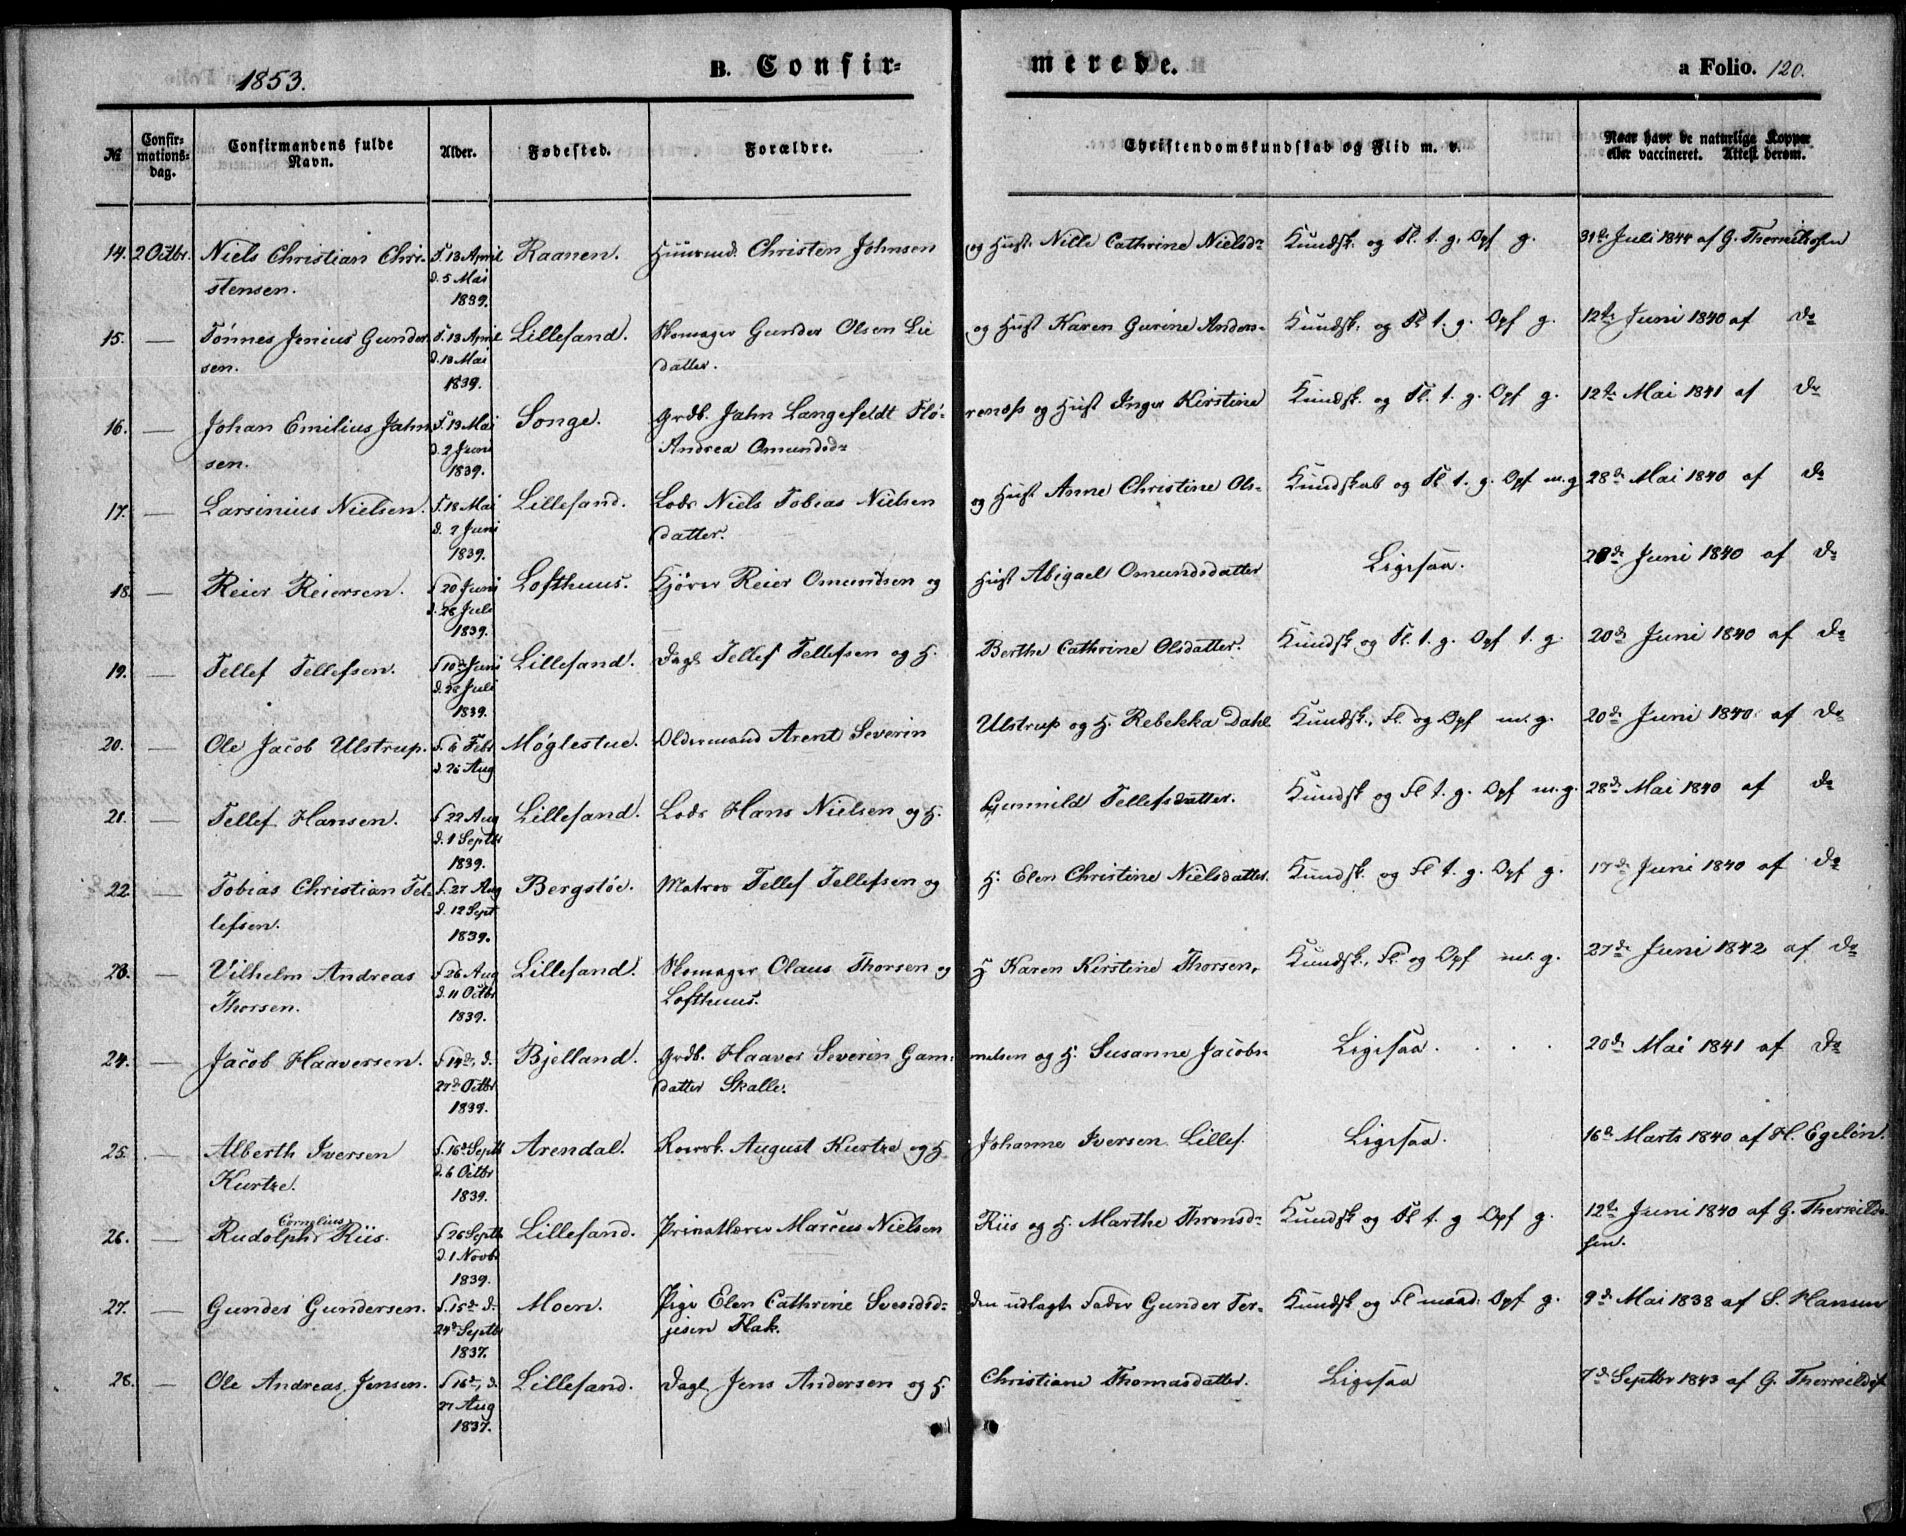 1853.
B. Confir-
merede.
a Folio. 120.
No
Confir-
mations-
dag.
Confirmandens fulde
Navn.
Alder.
Fødested.
Forældre.
Christendomskundskab og Flid m. v.
Naar havt de naturlige Kopper
eller vaccineret. Attest derom.
14. 2 Octbr. Niels Christian Chri- F. 13 April Raanen. Huusmd. Christen Johnsen og Hust. Nille Cathrine Nielsdr Kundsk. og Fl. t. g. Opf g. 31te Juli 1844 af G. Therkildsen
stensen. d. 5 Mai
1839.
15. — Tønnes Jenius Gunder- F. 13 April Lillesand. Skomager Gunder Olsen Lie og Hust Karen Gurine Anders- Kundsk: og Fl t. g. Opf g. 12te Juni 1840 af do
sen. d. 13 Mai datter.
1839.
16. — Johan Emilius Jahn- F. 13 Mai Songe. Grdb. Jahn Langefeldt Flø- renæss og Hust Inger Kirstine Kundsk. og Fl. t. g. Opf g. 12te Mai 1841 af do
sen. d. 2 Juni Andrea Omundsdr
1839.
17. — Larsinius Nielsen. F. 18 Mai Lillesand. Lods Niels Tobias Nielsen og Hust Anne Christine Ols- Kundskab og Fl t. g. Opf m.g. 28de Mai 1840 af do
d. 2 Juni datter.
1839.
18. — Reier Reiersen. F 20 Juni Lofthuus. Kjører Reier Omundsen og Hust Abigael Omundsdatter Ligesaa. Juni 1840 af do
d. 28 Juli
1839.
19. — Tellef Tellefsen. F 10de Juni Lillesand. Dagl Tellef Tellefsen og H. Berthe Cathrine Olsdatter. Kundsk og Fl. t. g. Opf t. g. 20de Juni 1840 af do
d. 28 Juli
1839.
20. — Ole Jacob Ulstrup. F. 6 Febr Møglestue. Oldermand Arent Severin Ulstrup og H. Rebekka Dahl Kundsk., Fl og Opf m. g. 20de Juni 1840. af do
d. 26 Aug
21. — Tellef Hansen. F 22 Aug Lillesand. Lods Hans Nielsen og H. Gunnild Tellefsdatter. Kundsk og Fl t. g. Opf m.g. 28de Mai 1840 af do
d. 1 Septbr
1839.
22. — Tobias Christian Tel- F. 27 Aug Bergstøe. Matros Tellef Tellefsen og H. Elen Christine Nielsdatter. Kundsk. og Fl t. g. Opf g. 17de Juni 1840 af do
lefsen. d. 12 Sept
1839.
23. — Vilhelm Andreas F 26 Aug Lillesand. Skomager Olaus Thorsen og H Karen Kirstine Thorsen, Kundsk., Fl. og Opf m. g. 27de Juni 1842 af do
Thorsen. d. 11 Octbr Lofthuus.
1839.
24. — Jacob Haaversen. F 14de, d. Bjelland. Grdb. Haaver Severin Gam- melsen og H. Susanne Jacobs- Ligesaa. 20de Mai 1841 af do
27de Octbr datter Skalle.
1839.
25. — Alberth Iversen F. 16de Septb Arendal. August Kurtze og H. Johanne Iversen Lillef. Ligesaa. 16de Marts 1840 af H. Egelön.
Kurtze. d. 6 Octbr
1839.
26. — Rudolph Cornelius Riis. F 26 Septb Lillesand. Privatlærer Marcus Nielsen Riis og H. Marthe Thronsdr Kundsk og Fl t. g Opf g. 12te Juni 1840 af G. Therkild-
d. 1 Novbr sen.
1839.
27. — Gunder Gundersen. F. 15de d. Moen. Pige Elen Cathrine Svendsdr den udlagte Fader Gunder Ter- Kundsk og Fl maad. Opf g. 9de Mai 1838 af S. Hansen
24de Septbr jesen Flak.
1837.
28. — Ole Andreas Jensen. F 16de, d. Lillesand. Dagl Jens Andersen og H. Christiane Thomasdatter. Ligesaa 7de Septbr 1843 af G. Therkilds.
27 Aug
1837.